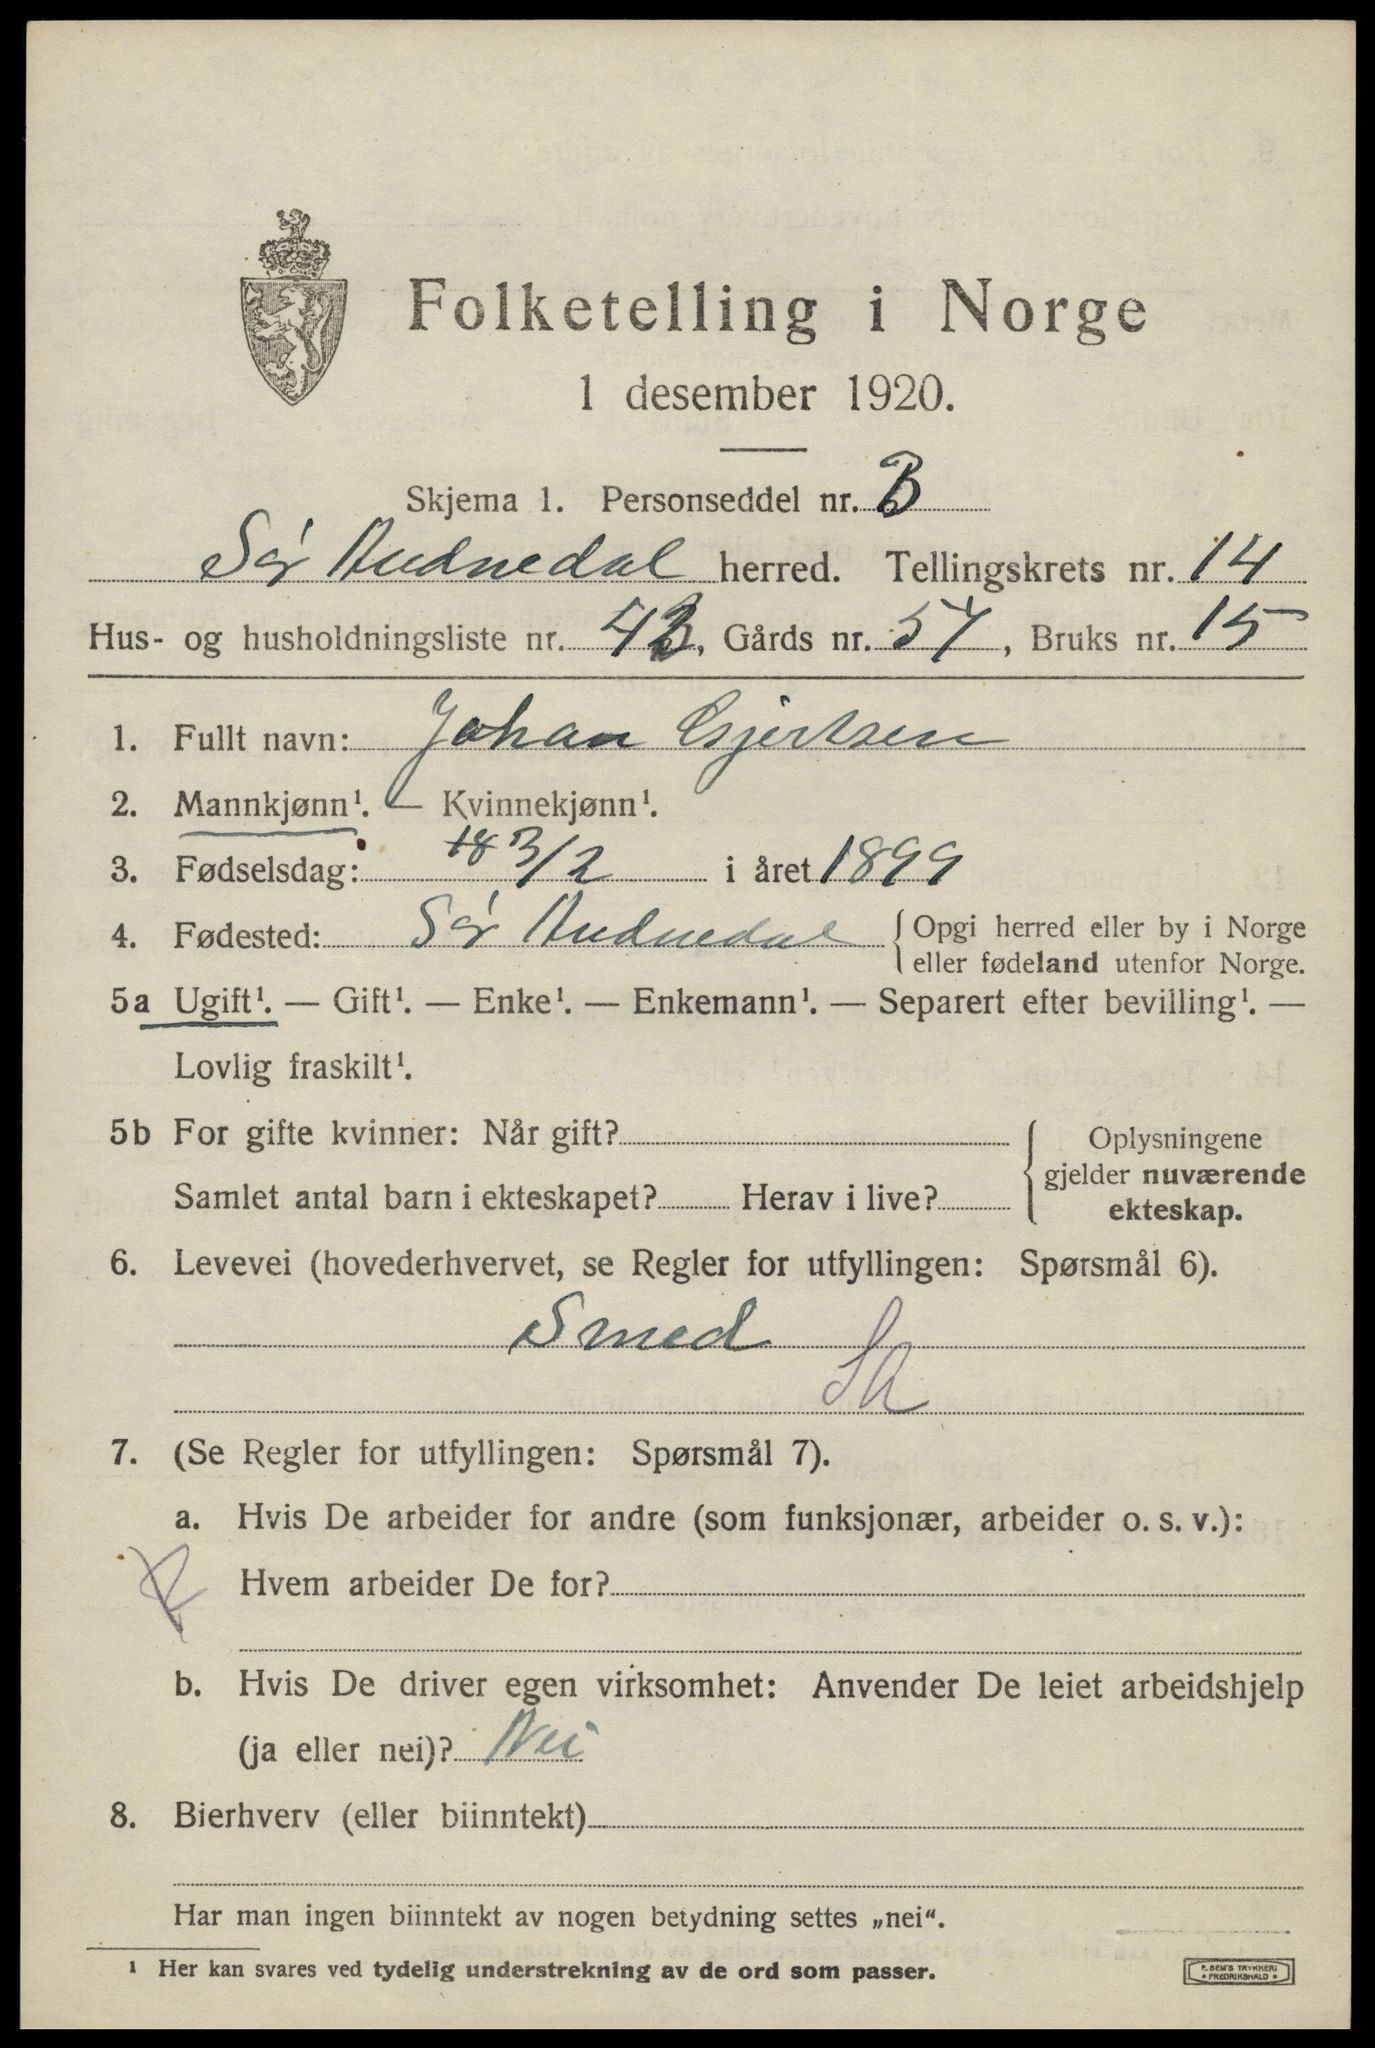 Folketelling i Norge
1 desember 1920.
Skjema 1. Personseddel nr. 3
Sør Audnedal herred. Tellingskrets nr. 14
Hus- og husholdningsliste nr. 43, Gårds nr. 54, Bruks nr. 15
1. Fullt navn: Johan Gjertsen
2. Mannkjønn¹. — Kvinnekjønn¹.
3. Fødselsdag: 18 3/2 i året 1899
4. Fødested: Sør Audnedal { Opgi herred eller by i Norge
eller fødeland utenfor Norge.
5a Ugift¹. — Gift¹. — Enke¹. — Enkemann¹. — Separert efter bevilling¹. —
Lovlig fraskilt¹.
5b For gifte kvinner: Når gift?
Samlet antal barn i ekteskapet? Herav i live?
{ Oplysningene
gjelder nuværende
ekteskap.
6. Levevei (hovederhvervet, se Regler for utfyllingen: Spørsmål 6).
Smed
7. (Se Regler for utfyllingen: Spørsmål 7).
a. Hvis De arbeider for andre (som funksjonær, arbeider o. s. v.):
Hvem arbeider De for?
b. Hvis De driver egen virksomhet: Anvender De leiet arbeidshjelp
(ja eller nei)? Nei
8. Bierhverv (eller biinntekt)
Har man ingen biinntekt av nogen betydning settes „nei“.
¹ Her kan svares ved tydelig understrekning av de ord som passer.
E. SEM'S TRYKKERI
• FREDRIKSHALD •